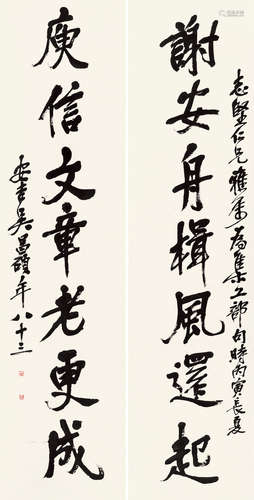 志堅仁兄雅為集工部句時丙寅長夏
謝安舟楫風還起
庾信文章老更成
安吉吳昌碩年八十三